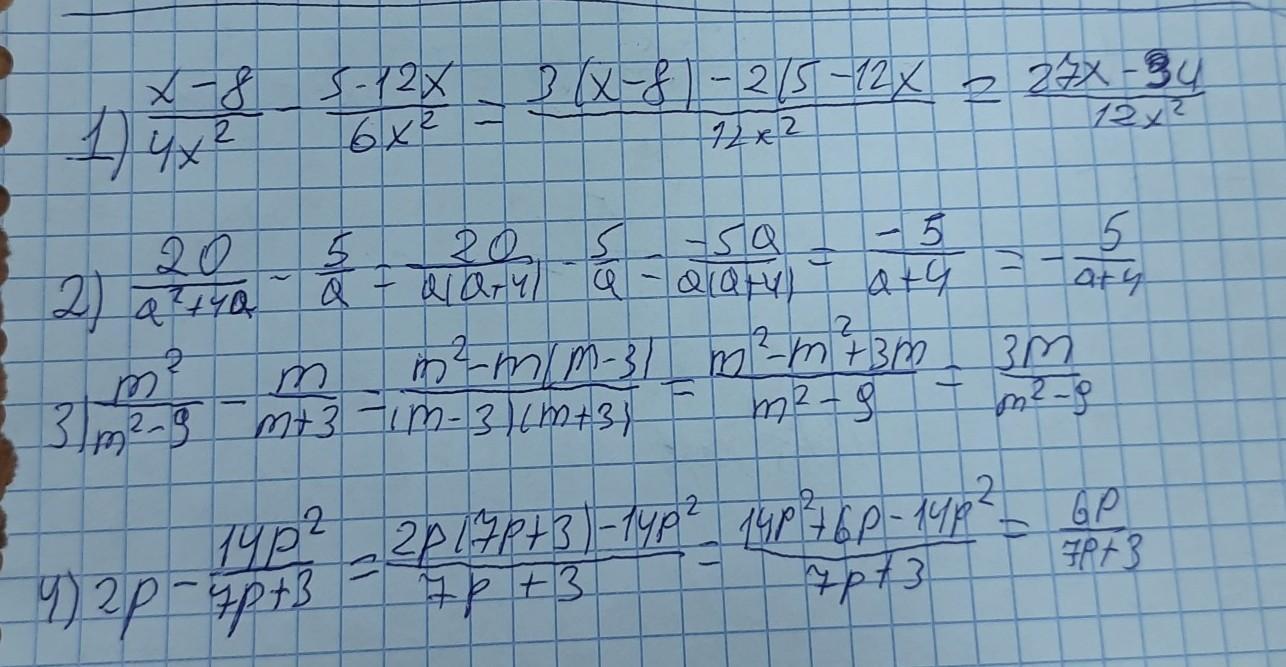 1) (x-8)/(4x²) - (5-12x)/(6x²) = (3(x-8)-2(5-12x)/(12x²) = (27x-34)/(12x²)
2) 20/(a²+4a) - 5/a = 20/(a(a+4)) - 5/a = (-5a)/(a(a+4)) = (-5)/(a+4) = - 5/(a+4)
3) m²/(m²-9) - m/(m+3) = (m²-m(m-3))/((m-3)(m+3)) = (m²-m²+3m)/(m²-9) = 3m/(m²-9)
4) 2p - 14p²/(7p+3) = (2p(7p+3)-14p²)/(7p+3) = (14p²+6p-14p²)/(7p+3) = 6p/(7p+3)